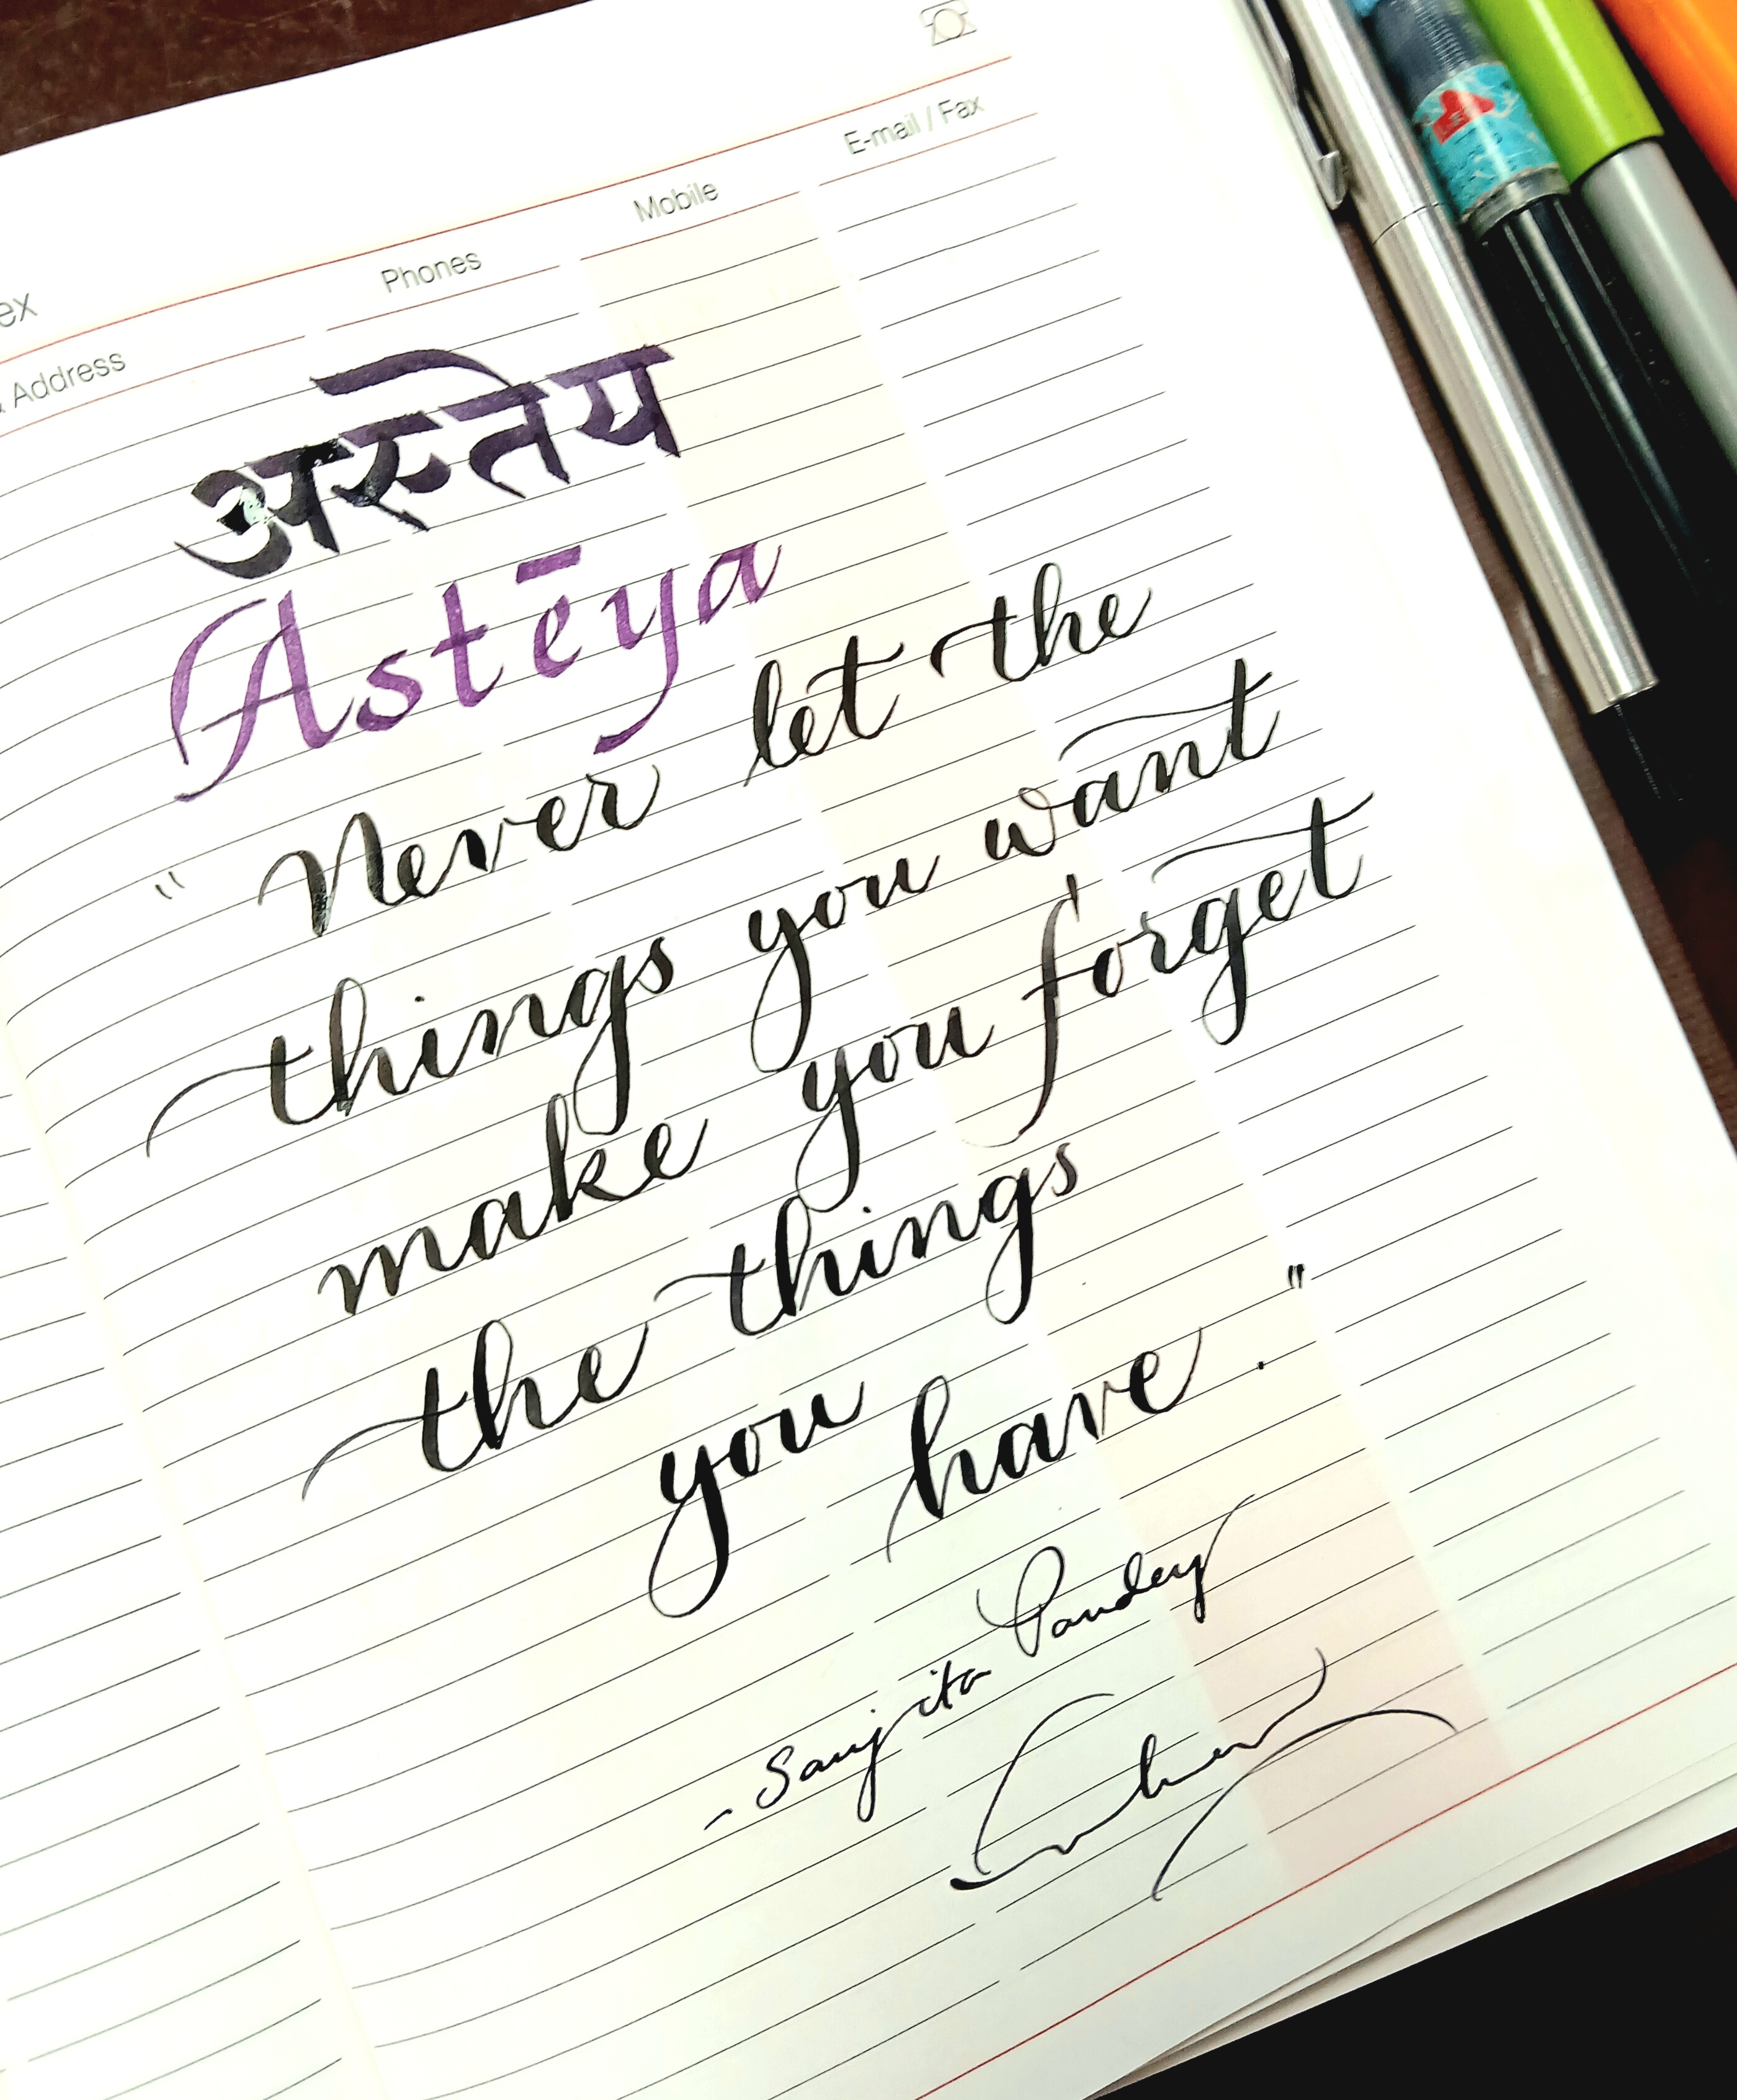 ex
Address
Phones
Mobile
E-mail / Fax
अस्तेय
Astēya
"Never let the
things you want
make you forget
the things
you have."
- Sanjita Pandey